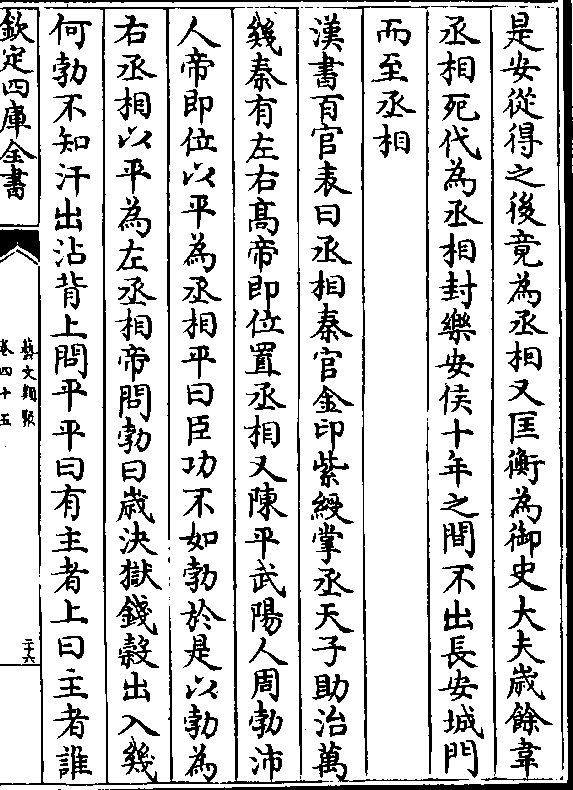 是安從得之後竟為丞相又匡衡為御史大夫歳餘韋
丞相死代為丞相封樂安侯十年之間不出長安城門
而至丞相
漢書百官表曰丞相秦官金印紫綬掌丞天子助治萬
幾秦有左右髙帝即位置丞相又陳平武陽人周勃沛
人帝即位以平為丞相平曰臣功不如勃於是以勃為
右丞相以平為左丞相帝問勃曰歳決獄錢榖出入幾
何勃不知汗出沾背上問平平曰有主者上曰主者誰
欽定四庫全書
藝文類聚
卷四十五
二十六